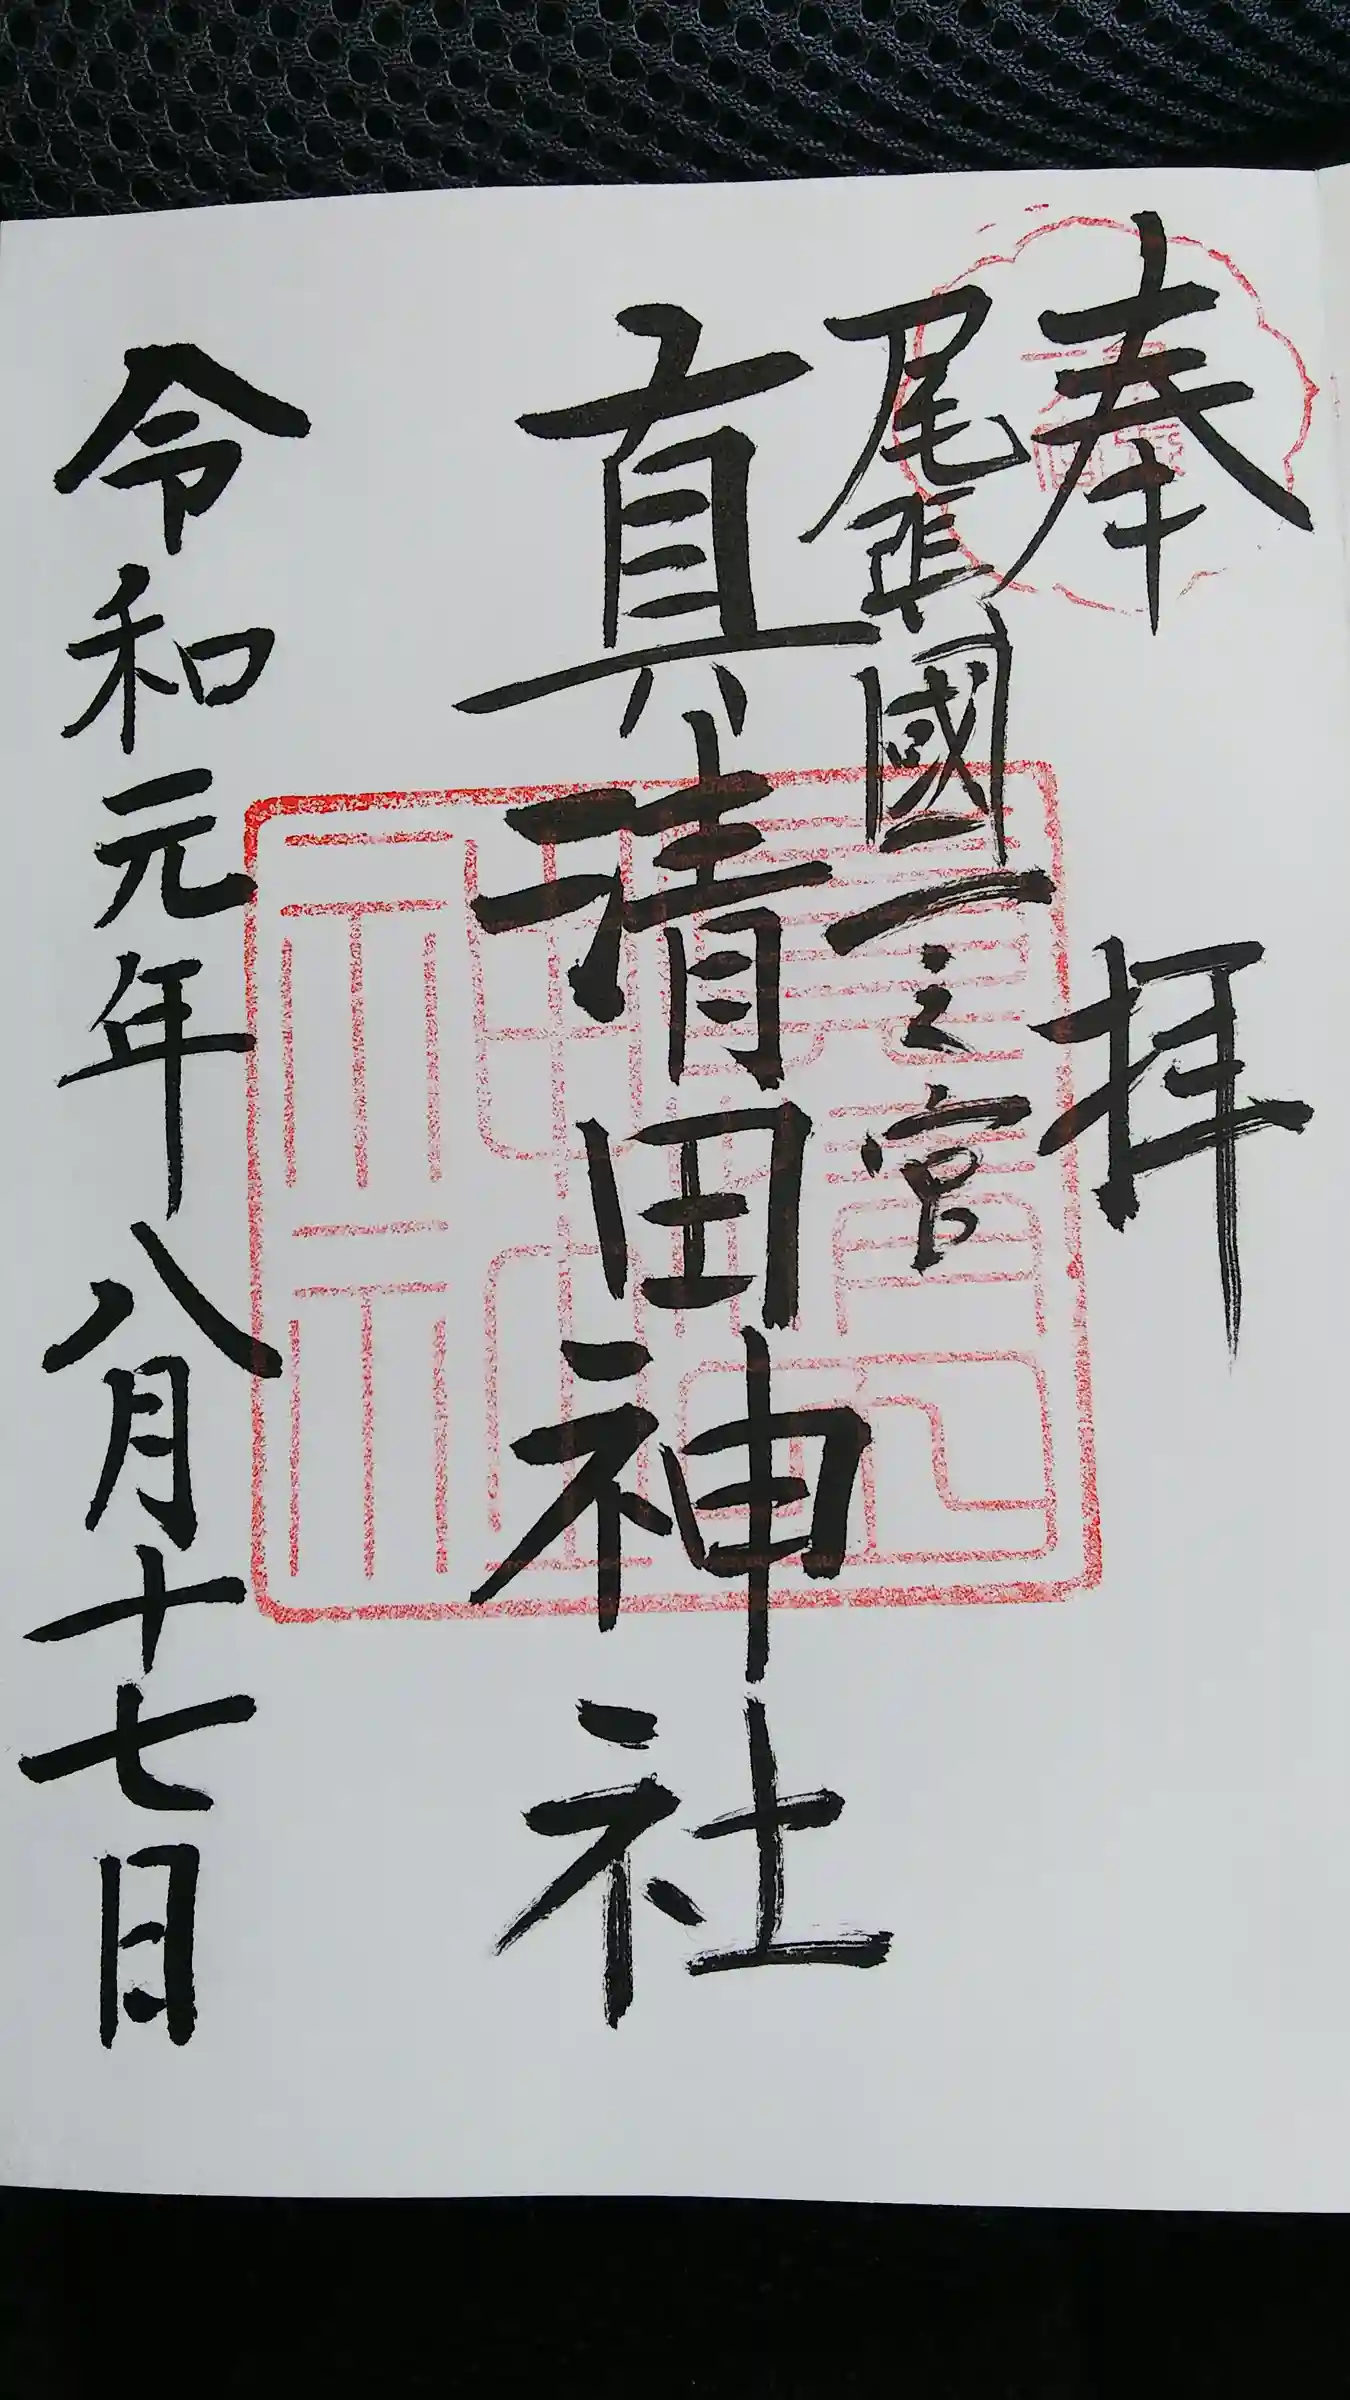 奉拝
尾張國一之宮
真清田神社
令和元年八月十七日